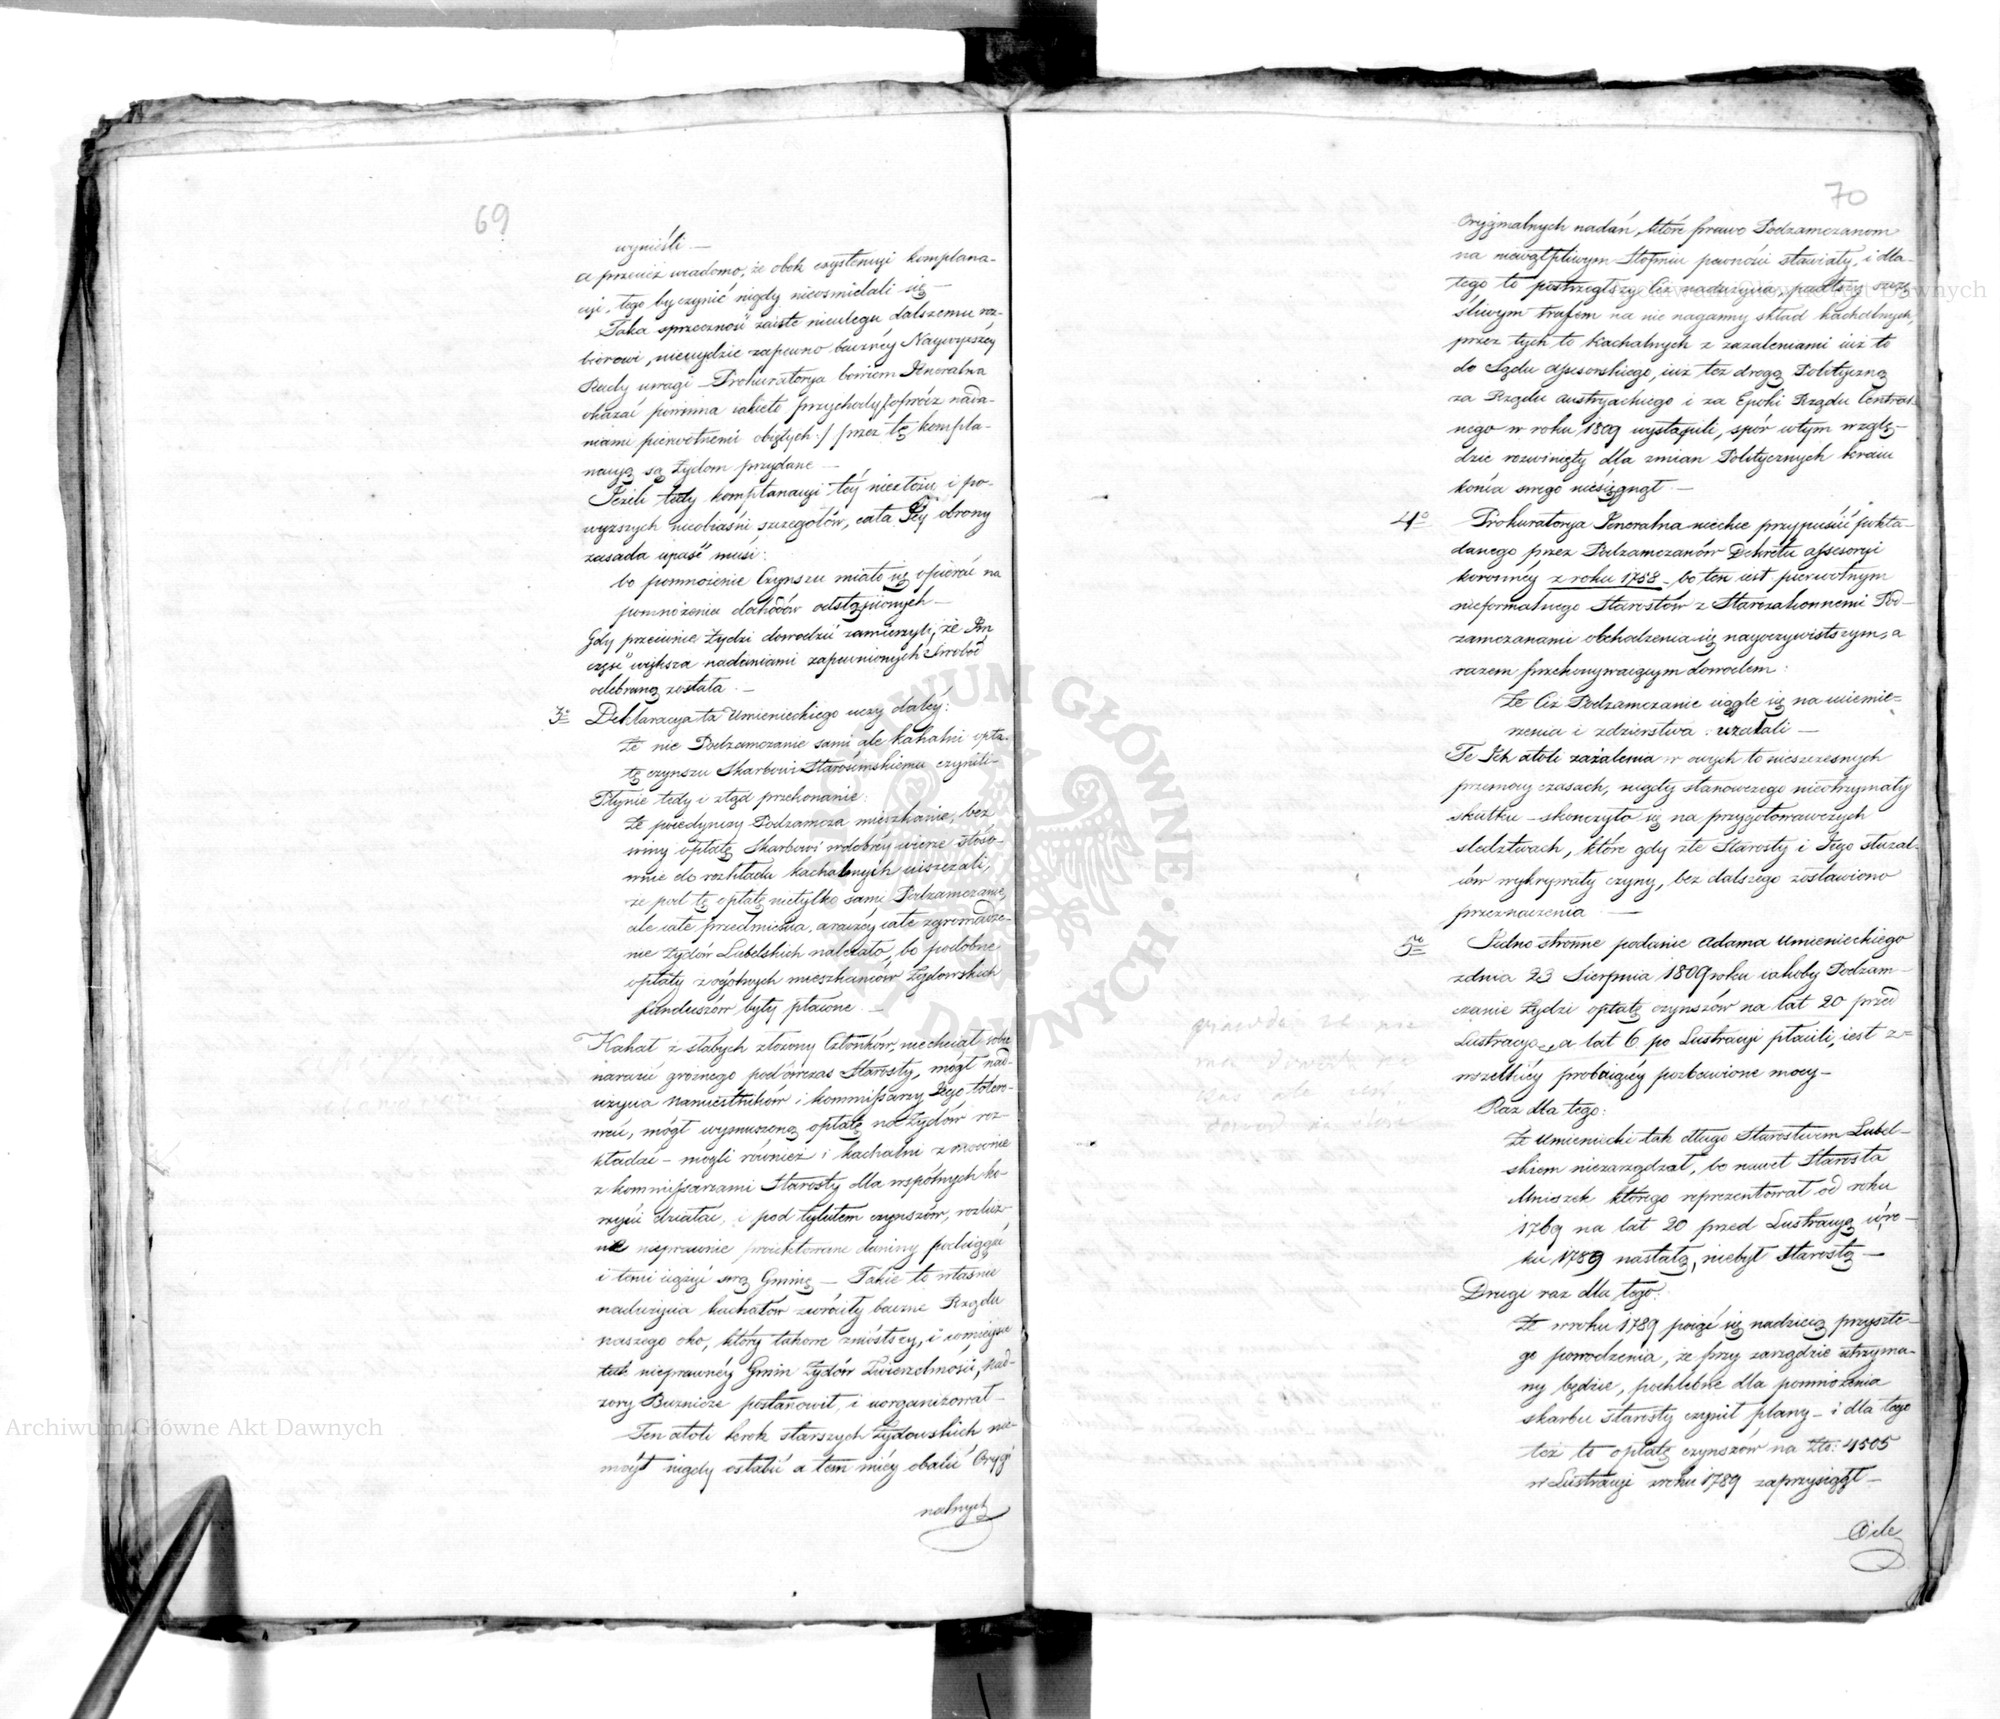 69
wynieśli —
a przecież wiadomo, że obok exystencyi komplana-
cyi, tego by czynić nigdy nieośmielali się —
Taka sprzeczność zaiste nieulega dalszemu roz-
biorowi, nieuydzie zapewno baczney Naywyższey
Rady uwagi — Prokuratorya bowiem Jeneralna
okazać powinna iakieto przychody /:oprócz nada-
niami pierwotnemi obiętych:/ przez tę kompla-
nacyą są Żydom przydane —
Jeżeli tedy komplanacyi téy niezłoży i po-
wyższych nieobiaśni szczegółów, cała Jéy obrony
zasada upaść musi:
bo pomnożenie Czynszu miało się opierać na
pomnożeniu dochodów odstąpionych —
Gdy przeciwnie Żydzi dowodzić zamierzyli, że Im
część większa nadaniami zapewnionych Swobód
odebraną została. —
3o Deklaracya ta Umienieckiego uczy daléy:
że nie Podzamczanie sami, ale kahalni opła-
tę czynszu Skarbowi Starościńskiemu czynili —
Płynie tedy i ztąd przekonanie:
że poiedynczy Podzamcza mieszkanie, bez
winy opłatę Skarbowi w dobréy wierze stoso-
wnie do rozkładu kachalnych uiszczali,
że pod tę opłatę nietylko sami Podzamczanie,
ale całe przedmieścia, a raczéy całe zgromadze-
nie Żydów Lubelskich należało, bo podobne
opłaty z ogólnych mieszkańców Żydowskich
funduszów były płacone. —
Kahał z słabych złożony Członków, niechciał sobie
narazić groźnego podówczas Starosty, mógł nad-
użycia namiestników i kommissarzy Jego tolero-
wać, mógł wymuszoną opłatę na Żydów roz-
kładać — mogli również i kachalni zmownie
z kommissarzami Starosty dla wspólnych ko-
rzyści działać, i pod tytułem czynszów, rozlicz-
ne nieprawnie proiektowane daniny podciągać
i temi ciążyć swą Gminę — Takie to właśnie
nadużycia kachałów zwróciły baczne Rządu
naszego oko, który takowe zniósłszy, i w mieysce
tak nieprawnéy Gmin Żydów Zwierzchności, Do-
zory Bużnicze postanowił, i uorganizował —
Ten atoli krok starszych Żydowskich nie-
mógł nigdy osłabić a tem mniéy obalić Orygi
nalnych
70
Oryginalnych nadań, które prawo Podzamczanom
na niewątpliwym Stopniu pewności stawiały, i dla-
tego to postrzegłszy Ciż nadużycia, padłszy szczę-
śliwym trafem na nienaganny skład kachalnych,
przez tych to Kachalnych z zażaleniami iuż to
do Sądu assesorskiego, iuż też drogą Polityczną
za Rządu austryackiego i za Epoki Rządu Central-
nego w roku 1809 wystąpili, spór wtym wzglę-
dzie rozwinięty dla zmian Politycznych kraiu
końca swego niesięgnął. —
4o Prokuratorya Jeneralna niechce przypuścić pokła-
danego przez Podzamczanów Dekretu assessoryi
koronnéy z roku 1758 — bo ten iest pierwotnym
nieformalnego Starostów z Starozakonnemi Pod-
zamczanami obchodzenia się nayoczywistszym, a
razem przekonywaiącym dowodem:
że Ciż Podzamczanie ciągle się na uciemię-
żenia i zdzierstwa użalali —
Te Ich atoli zażalenia w owych to nieszczesnych
przemocy czasach, nigdy stanowczego nieotrzymały
skutku — skonczyło się na przygotowawczych
sledztwach, które gdy złe Starosty i Jego służal-
ców wykrywały czyny, bez dalszego zostawiono
przeznaczenia —
5o Jedno stronne podanie Adama Umienieckiego
zdnia 23 Sierpnia 1809 roku iakoby Podzam-
czanie Żydzi opłatę czynszów na lat 20 przed
Lustracyą, a lat 6 po Lustracyi płacili, iest z-
wszelkiéy probuiącéy pozbawione mocy —
Raz dla tego:
że Umieniecki tak długo Starostwem Lubel-
skiem niezarządzał, bo nawet Starosta
Mniszek którego reprezentował od roku
1769 na lat 20 przed Lustracyą wro-
ku 1789 nastałą, niebył Starostą —
Drugi raz dla tego:
że wroku 1789 poiąć się nadzieią przyszłe-
go powodzenia, że przy zarządzie utrzyma-
ny będzie, pochlebne dla pomnożenia
skarbu starosty czynił plany — i dla tego
też to opłatę czynszów na Złp: 4505
w Lustracyi zroku 1789 zaprzysiągł —
O ile
Archiwum Główne Akt Dawnych
Archiwum Główne Akt Dawnych
ARCHIWUM GŁÓWNE AKT DAWNYCH